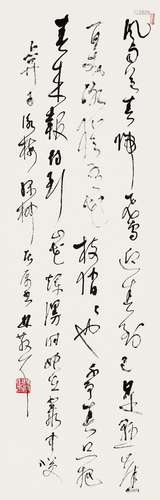 风雨送春归飞雪迎春到已是悬崖
百丈冰犹有花枝俏俏也不争春只把
春来报待到山花烂漫时她在丛中笑
卜算子咏梅